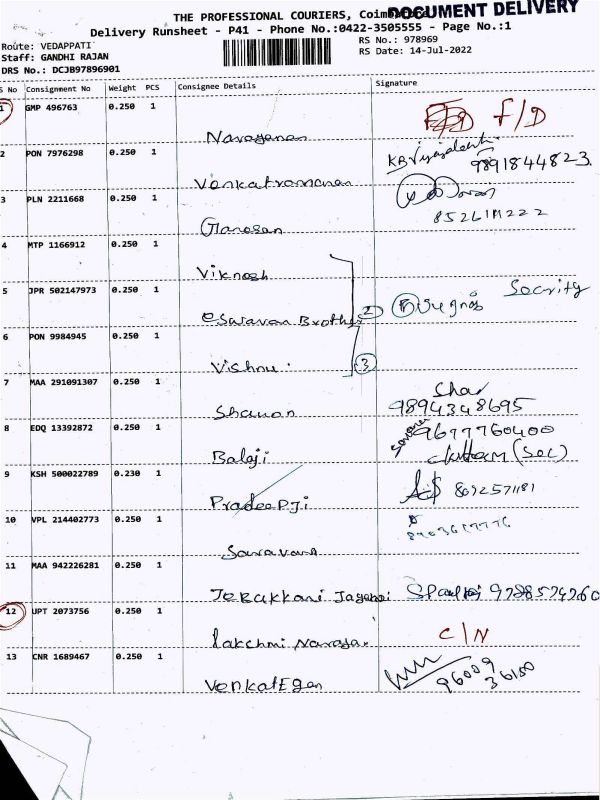 DOCUMENT DELIVERY
THE PROFESSIONAL COURIERS,
Delivery Runsheet - P41 - Phone No.:0422-3505555 - Page No.:1
Route: VEDAPPATI
RS No.: 978969
Staff: GANDHI RAJAN
RS Date: 14-Jul-2022
DRS No.: DCJB97896901
S No Consignment No Weight PCS Consignee Details Signature
1 GMP 496763 0.250 1
Narayanan F/D
2 PON 7976298 0.250 1
Venkatramanan 9891844823
3 PLN 2211668 0.250 1
Ganesan
4 MTP 1166912 0.250 1
Viknesh
5 JPR 502147973 0.250 1
Esaravan Brothes 2 Security
6 PON 9984945 0.250 1
Vishnu 3
7 MAA 291091307 0.250 1
Sharan 9894348695
8 EDQ 13392872 0.250 1
Balaji 9677760400
(Sec)
9 KSH 500022789 0.230 1
Pradeep Ji
10 VPL 214402773 0.250 1
Saravana
11 MAA 942226281 0.250 1
Jebakkani
12 UPT 2073756 0.250 1
Lakchmi C/N
13 CNR 1689467 0.250 1
VenkatEsan 96009
36150